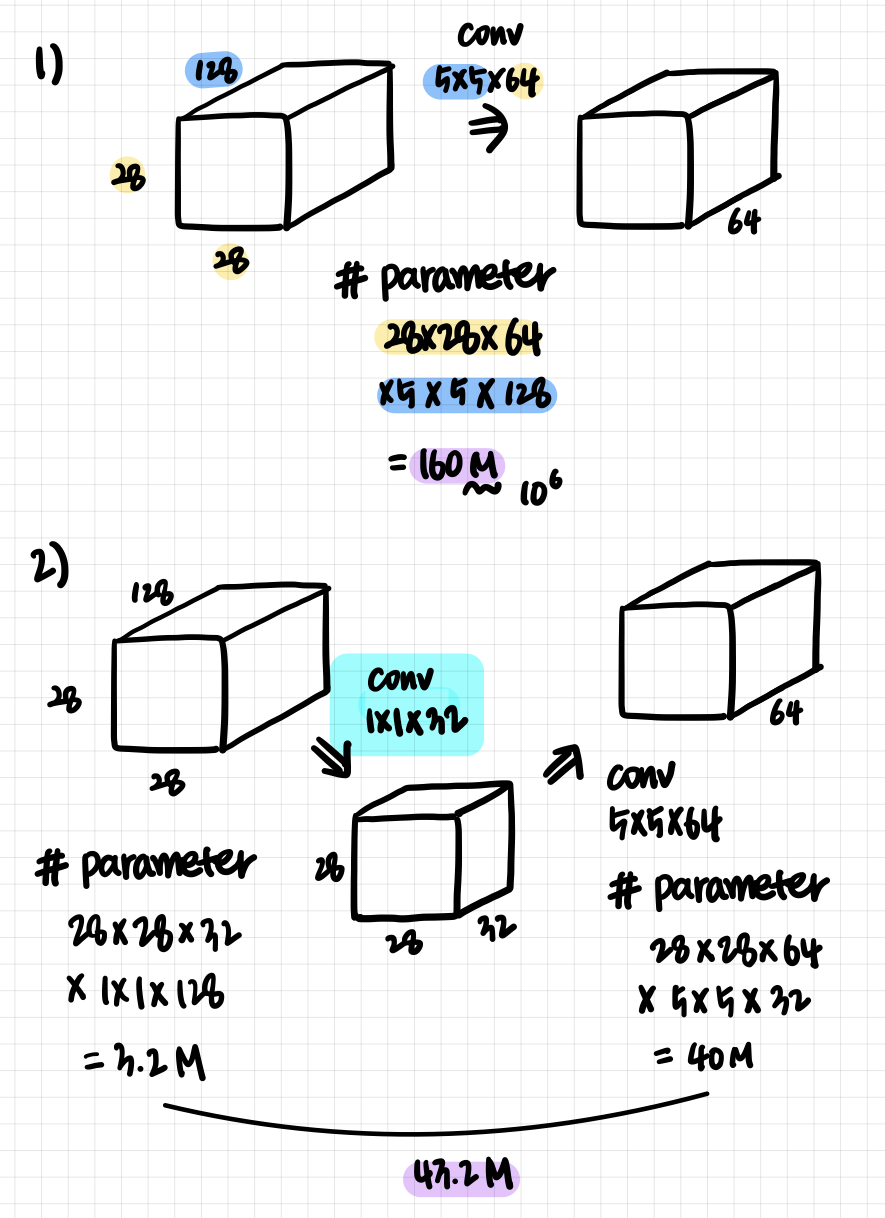 1)
128
28
28
Conv
5×5×64
64
# parameter
28×28×64
×5×5×128
= 160 M
10⁶
2)
128
28
28
Conv
1×1×32
28
28
32
64
Conv
5×5×64
# parameter
28×28×32
× 1×1×128
= 3.2 M
# parameter
28×28×64
× 5×5×32
= 40M
43.2 M